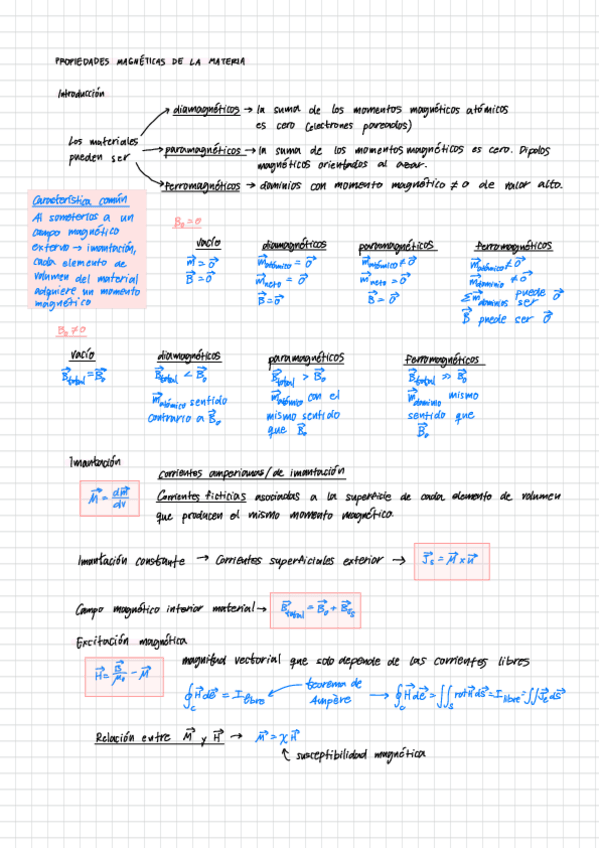 PROPIEDADES MAGNÉTICAS DE LA MATERIA
Introducción
Los materiales
pueden ser
diamagnéticos → la suma de los momentos magnéticos atómicos
es cero (electrones pareados)
paramagnéticos → la suma de los momentos magnéticos es cero. Dipolos
magnéticos orientados al azar.
ferromagnéticos → dominios con momento magnético ≠ 0 de valor alto.
Característica común
Al someterlos a un
campo magnético
externo → imantación,
cada elemento de
volumen del material
adquiere un momento
magnético
B₀ = 0
vacío
m⃗ = 0⃗
B⃗ = 0⃗
diamagnéticos
m⃗atómico = 0⃗
m⃗neto = 0⃗
B = 0⃗
paramagnéticos
m⃗atómico ≠ 0⃗
m⃗neto = 0⃗
B = 0⃗
ferromagnéticos
m⃗atómico ≠ 0⃗
m⃗dominio ≠ 0⃗
Σm⃗dominios puede ser 0⃗
B⃗ puede ser 0⃗
B₀ ≠ 0
vacío
B⃗total = B⃗₀
diamagnéticos
B⃗total < B⃗₀
m⃗atómico sentido
contrario a B⃗₀
paramagnéticos
B⃗total > B⃗₀
m⃗atómico con el
mismo sentido
que B⃗₀
ferromagnéticos
B⃗total >> B⃗₀
m⃗dominio mismo
sentido que
B⃗₀
Imantación
M⃗ = dm⃗/dv
corrientes amperianas/de imantación
Corrientes ficticias asociadas a la superficie de cada elemento de volumen
que producen el mismo momento magnético.
Imantación constante → Corrientes superficiales exterior → J⃗s = M⃗ × n⃗
Campo magnético interior material → B⃗total = B⃗₀ + B⃗Js
Excitación magnética
H⃗ = B⃗/μ₀ − M⃗
magnitud vectorial que solo depende de las corrientes libres
∮c H⃗ dℓ⃗ = I libre ← teorema de Ampère → ∮c H⃗ dℓ⃗ = ∬s rot H⃗ ds⃗ = I libre = ∬ J⃗ℓ ds⃗
Relación entre M⃗ y H⃗ → M⃗ = χ H⃗
susceptibilidad magnética